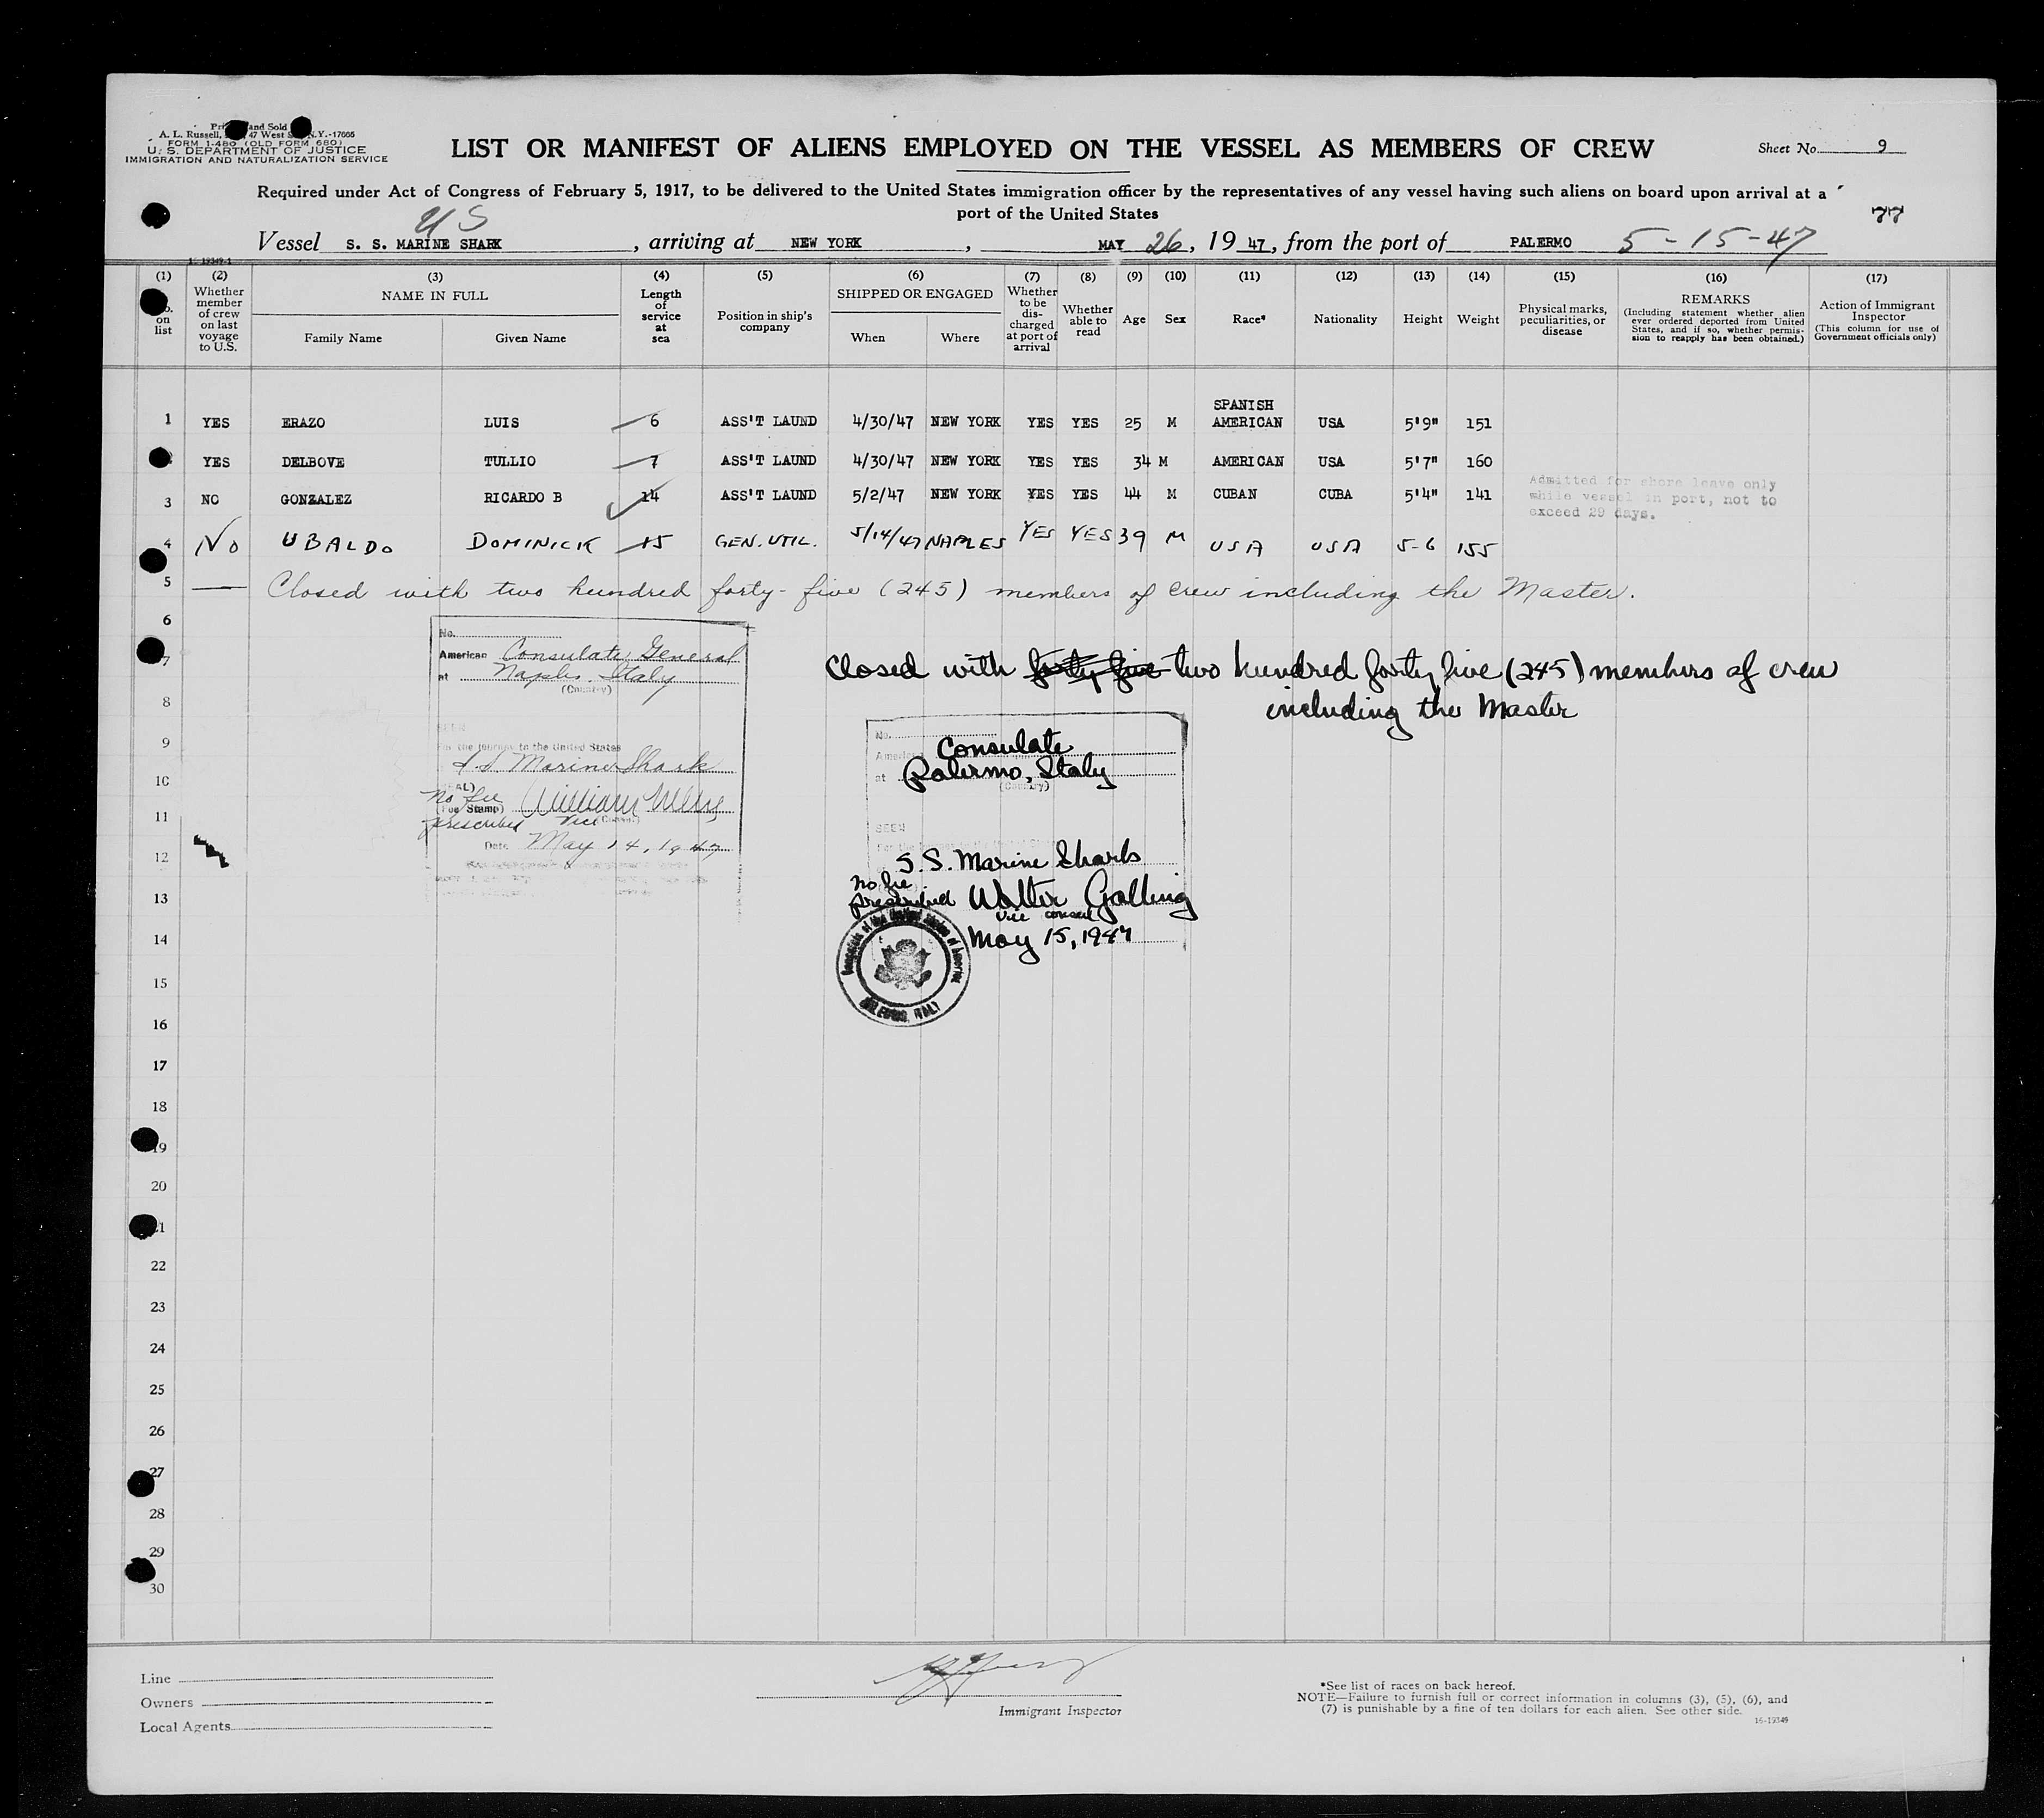 and Sold
A. L. Russell, 47 West N.Y.-17665
FORM I-480 (OLD FORM 680)
U. S. DEPARTMENT OF JUSTICE
IMMIGRATION AND NATURALIZATION SERVICE
LIST OR MANIFEST OF ALIENS EMPLOYED ON THE VESSEL AS MEMBERS OF CREW
Sheet No. 9
Required under Act of Congress of February 5, 1917, to be delivered to the United States immigration officer by the representatives of any vessel having such aliens on board upon arrival at a
port of the United States
77
US
Vessel S. S. MARINE SHARK, arriving at NEW YORK, MAY 26, 1947, from the port of PALERMO 5-15-47
(1) (2) (3) (4) (5) (6) (7) (8) (9) (10) (11) (12) (13) (14) (15) (16) (17)
on list
Whether member of crew on last voyage to U.S.
NAME IN FULL
Family Name Given Name
Length of service at sea
Position in ship's company
SHIPPED OR ENGAGED
When Where
Whether to be discharged at port of arrival
Whether able to read
Age Sex Race* Nationality Height Weight
Physical marks, peculiarities, or disease
REMARKS
(Including statement whether alien ever ordered deported from United States, and if so, whether permission to reapply has been obtained.)
Action of Immigrant Inspector
(This column for use of Government officials only)
1 YES ERAZO LUIS 6 ASS'T LAUND 4/30/47 NEW YORK YES YES 25 M SPANISH AMERICAN USA 5'9" 151
YES DELBOVE TULLIO 7 ASS'T LAUND 4/30/47 NEW YORK YES YES 34 M AMERICAN USA 5'7" 160
3 NO GONZALEZ RICARDO B 14 ASS'T LAUND 5/2/47 NEW YORK YES YES 44 M CUBAN CUBA 5'4" 141
Admitted for shore leave only
while vessel in port, not to
exceed 29 days.
4 No UBALDO DOMINICK 15 GEN. UTIL. 5/14/47 NAPLES YES YES 39 M USA USA 5-6 155
5 Closed with two hundred forty-five (245) members of crew including the Master.
6
7
8
9
10
11
12
13
14
15
16
17
18
19
20
21
22
23
24
25
26
27
28
29
30
No.
American Consulate General
at Naples Italy
(Country)
SEEN
For the journey to the United States
S S Marine Shark
No fee
(Fee Stamp) William
prescribed Vice (Consul)
Date May 14, 1947
Closed with forty five two hundred forty five (245) members of crew
including the Master
No.
America Consulate
at Palermo, Italy
(Country)
SEEN
For the
S.S. Marine Shark
no fee
prescribed Walter Galling
Vice consul
May 15, 1947
Consulate of the United States of America
PALERMO, ITALY
Line
Owners
Local Agents
Immigrant Inspector
*See list of races on back hereof.
NOTE—Failure to furnish full or correct information in columns (3), (5), (6), and
(7) is punishable by a fine of ten dollars for each alien. See other side.
16-19349